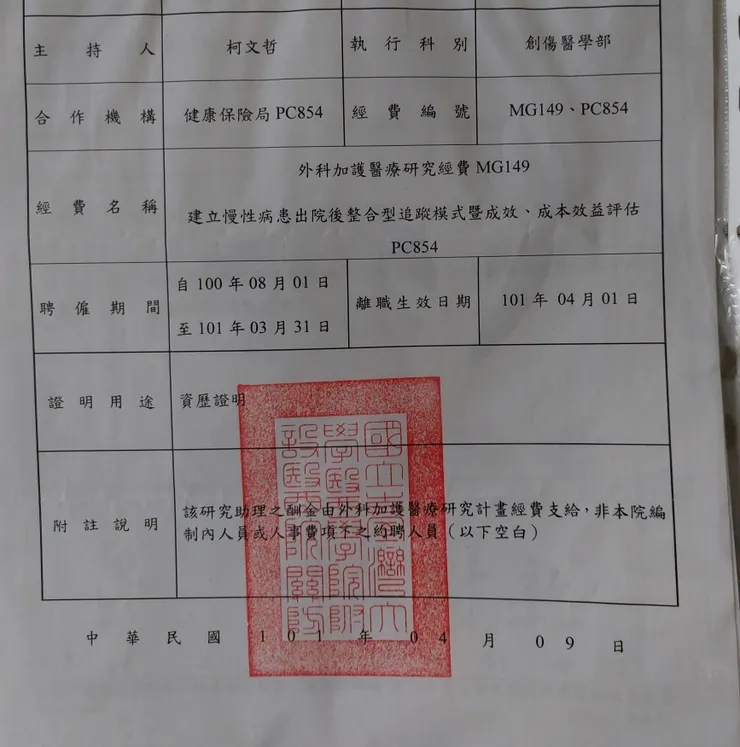 主持人 柯文哲 執行科別 創傷醫學部
合作機構 健康保險局 PC854 經費編號 MG149、PC854
經費名稱
外科加護醫療研究經費 MG149
建立慢性病患出院後整合型追蹤模式暨成效、成本效益評估
PC854
聘僱期間
自 100 年 08 月 01 日
至 101 年 03 月 31 日
離職生效日期 101 年 04 月 01 日
證明用途 資歷證明
附註說明
該研究助理之酬金由外科加護醫療研究計畫經費支給，非本院編
制內人員或人事費項下之約聘人員（以下空白）
國立臺灣大
學醫學院附
設醫院關防
中華民國 101 年 04 月 09 日